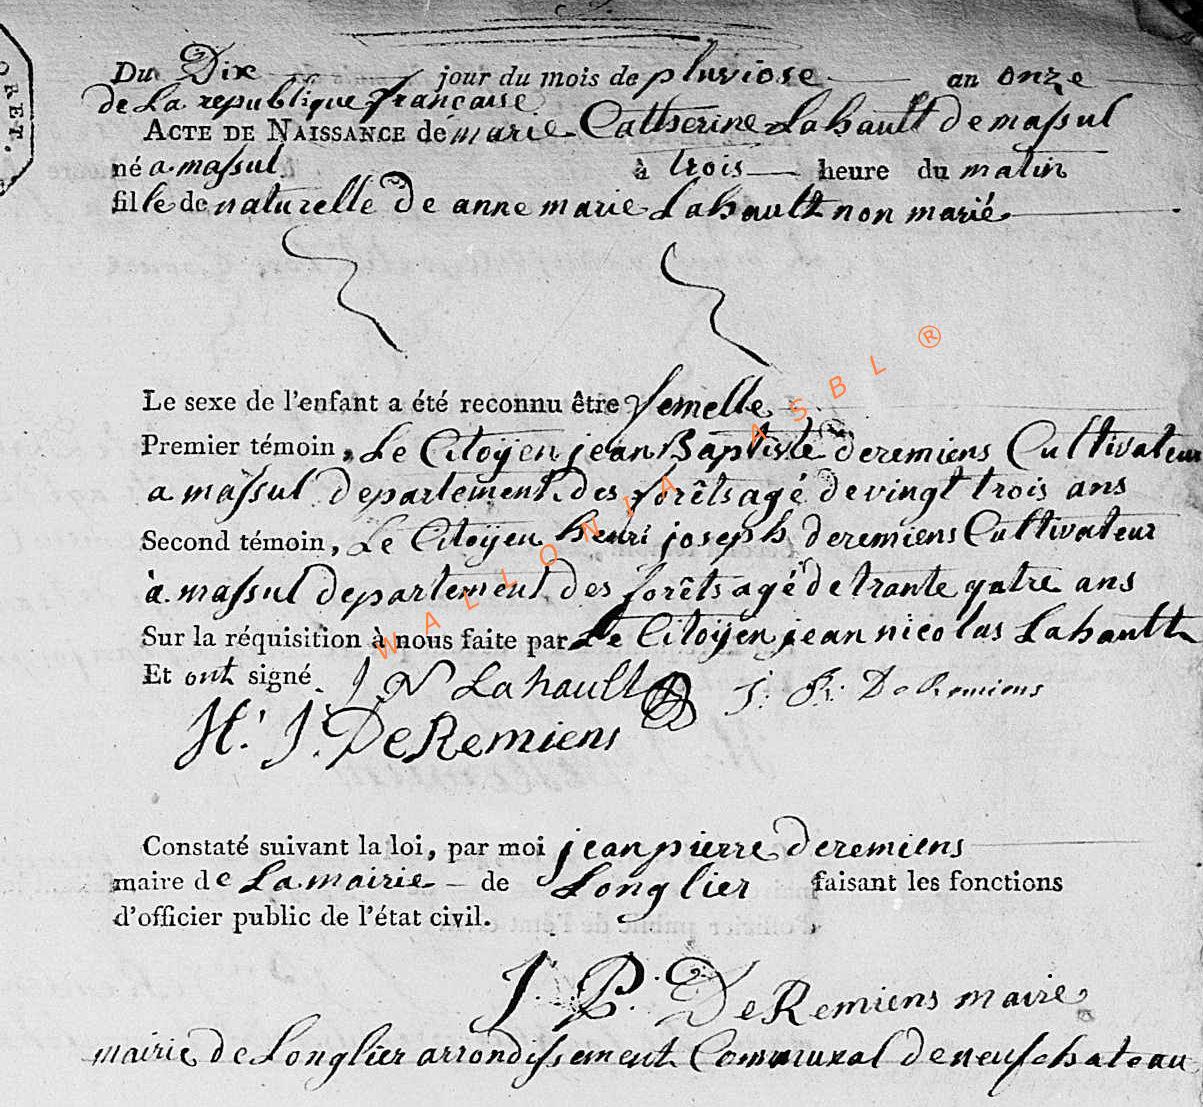 ORET.
Du Dix jour du mois de pluviose an onze
de La republique française
ACTE DE NAISSANCE de marie Cattserine Lahault de massul
né a massul à trois heure du matin
fille de naturelle De anne marie Lahault non marié
Le sexe de l'enfant a été reconnu être femelle
Premier témoin, Le Citoÿen jean Baptiste deremiens Cultivateur
a massul departement des forêts agé de vingt trois ans
Second témoin, Le Citoÿen henri joseph deremiens Cultivateur
à massul departement des forêts agé de trante qatre ans
Sur la réquisition à nous faite par Le Citoÿen jean nicolas Lahault
Et ont signé J N Lahault J. B. DeRemiens
H. J. DeRemiens
WALLONIA ASBL ®
Constaté suivant la loi, par moi jean pierre Deremiens
maire de La mairie de Longlier faisant les fonctions
d'officier public de l'état civil.
J. P. DeRemiens maire
mairie de Longlier arrondissement Communal de neufchateau